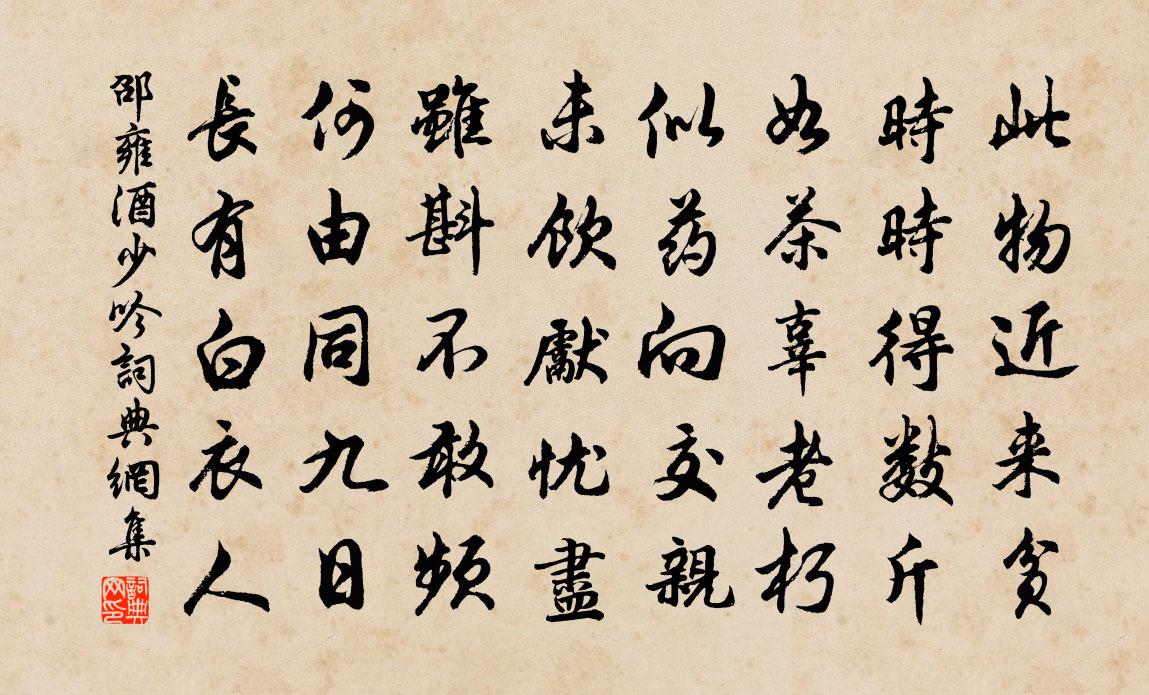 此物近来贫
時時得數斤
如茶辜老朽
似药向交親
未飲獻忧盡
雖斟不敢頻
何由同九日
長有白衣人
邵雍酒少吟詞典網集
詞典
网印